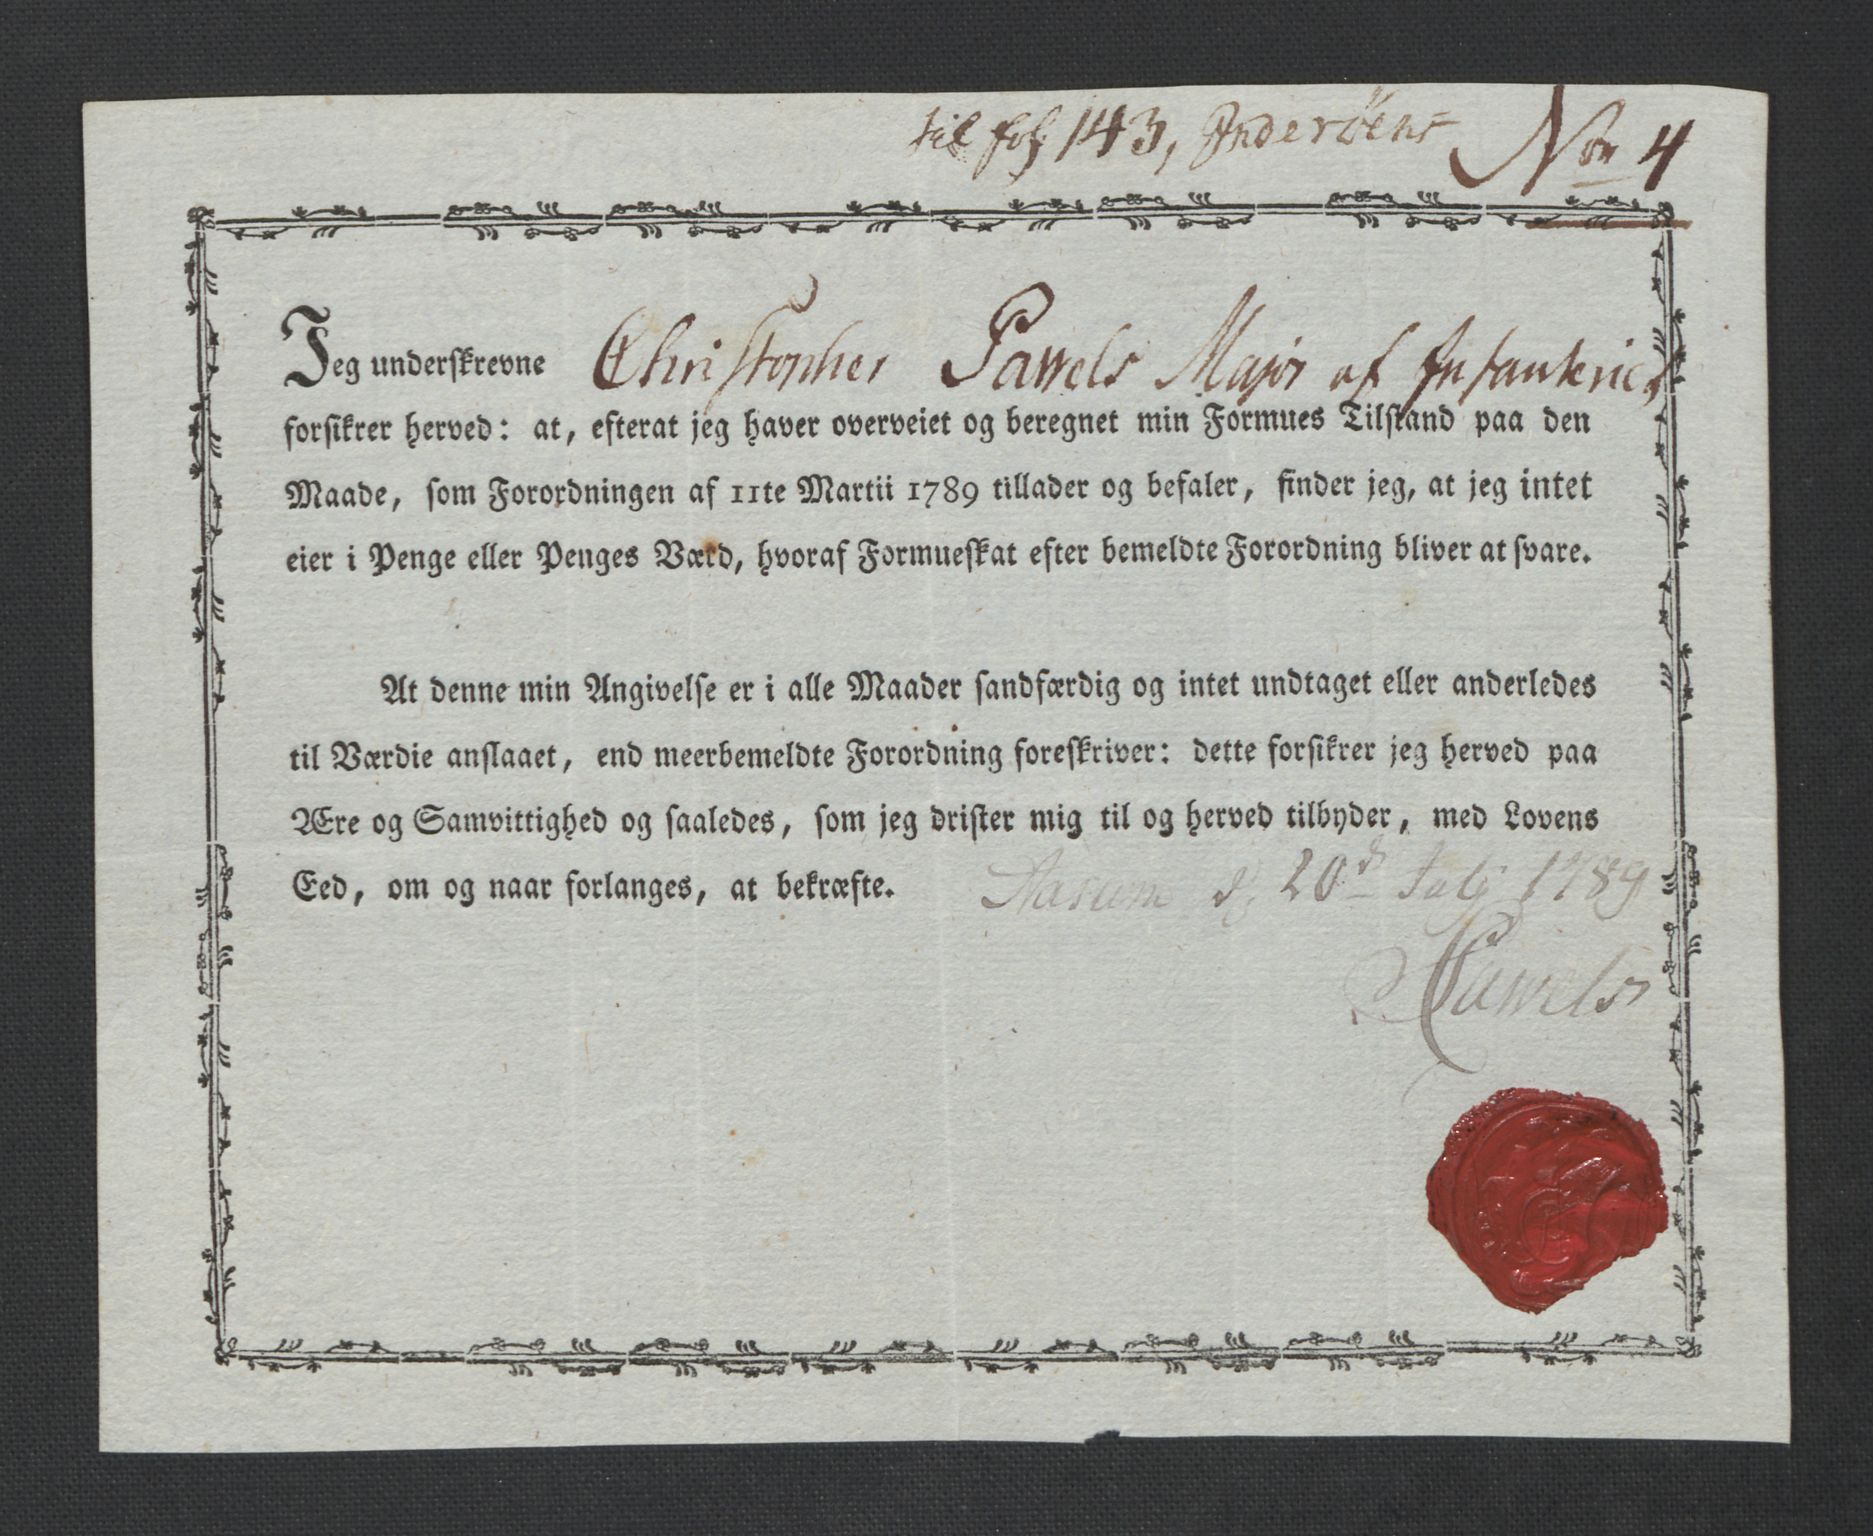 til fol 143, Inderøens No 4
Jeg underskrevne Christopher Pawels Major af Infanterie,
forsikrer herved: at, efterat jeg haver overveiet og beregnet min Formues Tilstand paa den
Maade, som Forordningen af 11te Martii 1789 tillader og befaler, finder jeg, at jeg intet
eier i Penge eller Penges Værd, hvoraf Formueskat efter bemeldte Forordning bliver at svare.
At denne min Angivelse er i alle Maader sandfærdig og intet undtaget eller anderledes
til Værdie anslaaet, end meerbemeldte Forordning foreskriver: dette forsikrer jeg herved paa
Ære og Samvittighed og saaledes, som jeg drister mig til og herved tilbyder, med Lovens
Eed, om og naar forlanges, at bekræfte. d. 20d July 1789
Pawels